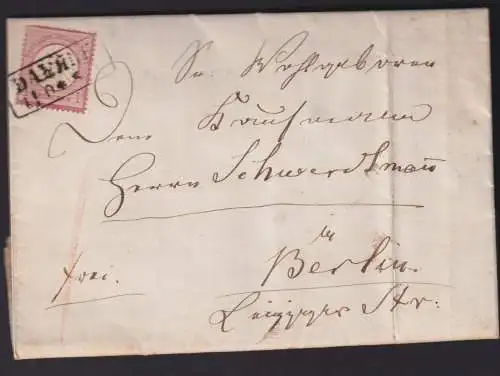 Sr. Wohlgeboren
Dem Kaufmann
Herrn Schwerdtmann
in
Berlin.
frei.
Leipziger Str.